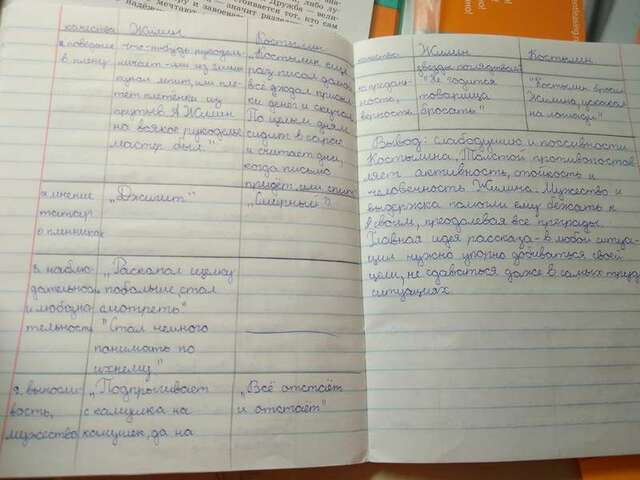 качества Жилин Костылин
поведение в плену
что-нибудь рукодель-
ничает-или из глины
кукол лепит, или пле-
тёт плетёнки из
прутьев. А Жилин
на всякое рукоделье
мастер был."
„Костылин ещё
раз писал домой,
всё ждал присыл-
ки денег и скучал.
По целым дням
сидит в сарае
и считает дни,
когда письмо
придёт, или спит"
мнение
татар
о пленниках
„Джигит"
„Смирный"
наблю-
дательность
и любозна-
тельность
„Раскопал щелку
побольше, стал
смотреть"
"Стал немного
понимать по
ихнему"
вынос-
вость,
мужество
„Подпрыгивает
с камушка на
камушек, да на
„Всё отстаёт
и отстаёт"
качества Жилин Костылин
звёзды поглядывает
предан-
ность,
верность
"Не годится
товарища
бросать"
"Костылин бросил
Жилина, ускакал
на лошади"
Вывод: слабодушию и пассивности
Костылина, Толстой противопостав
ляет активность, стойкость и
человечность Жилина. Мужество и
выдержка помогли ему бежать к
своим, преодолевая все преграды.
Главная идея рассказа-в любой ситуа-
ции нужно упорно добиваться своей
цели, не сдаваться даже в самых труд
ситуациях.